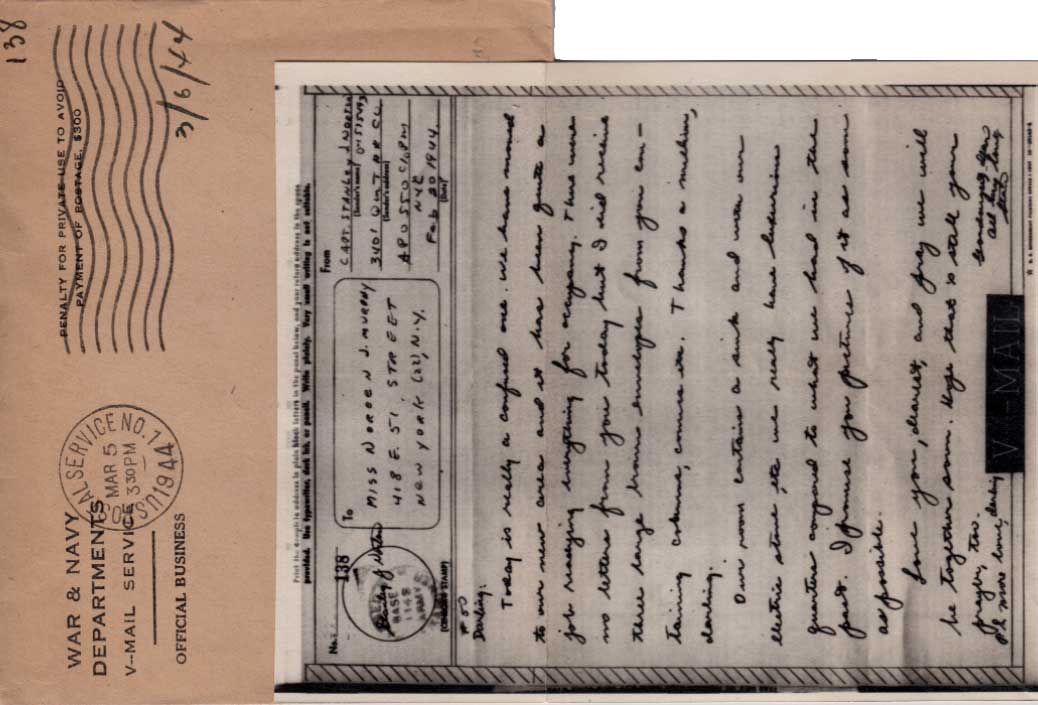 138
3/6/44
PENALTY FOR PRIVATE USE TO AVOID
PAYMENT OF POSTAGE, $300
U.S. POSTAL SERVICE NO. 1
MAR 5
3 30 PM
1944
WAR & NAVY
DEPARTMENTS
V-MAIL SERVICE
OFFICIAL BUSINESS
Print the complete address in plain block letters in the panel below, and your return address in the space
provided. Use typewriter, dark ink, or pencil. Write plainly. Very small writing is not suitable.
No.
138
(CENSOR'S STAMP)
To
MISS NOREEN J. MURPHY
418 E. 51. STREET
NEW YORK (22), N.Y.
From
CAPT. STANLEY J NORTH
(Sender's name)
3401 QM TRK CO.
(Sender's address)
APO 550 C/o PM
NYC
Feb 20 1944
(Date)
#50
Darling,
Today is really a confused one. we have moved
to our new area and it has been quite a
job readying everything for occupancy. There were
no letters from you today but I did receive
three large brown envelopes from you con-
taining columns, comics etc. Thanks a million,
darling.
Our room contains a sink and even our
electric stove, etc we really have luxurious
quarters compared to what we had in the
past. I promise you pictures of it as soon
as possible.
Love you, dearest, and pray we will
be together soon. Hope that is still your
prayer, too.
all my love
V-MAIL